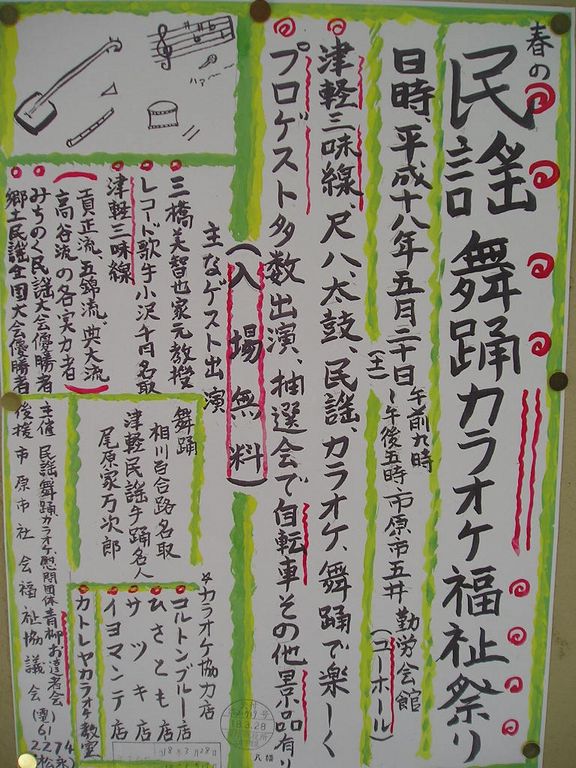 春の
民謡舞踊カラオケ福祉祭り
日時、平成十八年五月二十日(土)午前九時～午後五時 市原市五井 勤労会館(ユーホール)
津軽三味線、尺八、太鼓、民謡、カラオケ、舞踊で楽しく
プロゲスト多数出演、抽選会で自転車その他景品有り
(入場無料)
主なゲスト出演
三橋美智也家元教授
レコード歌手小沢千月名取
津軽三味線
(貢正流、五錦流、典大流
高谷流の各実力者)
みちのく民謡大会優勝者
郷土民謡全国大会優勝者
舞踊
相川百合路名取
津軽民謡手踊名人
尾原家万次郎
カラオケ協力店
コルトンブルー店
ひさとも店
サツキ店
イヨマンテ店
カトレヤカラオケ教室
主催 民謡舞踊カラオケ慰問団体青柳お達者会
後援 市原市社会福祉協議会
(電)61
2274
(松永)
18.3.28
八幡